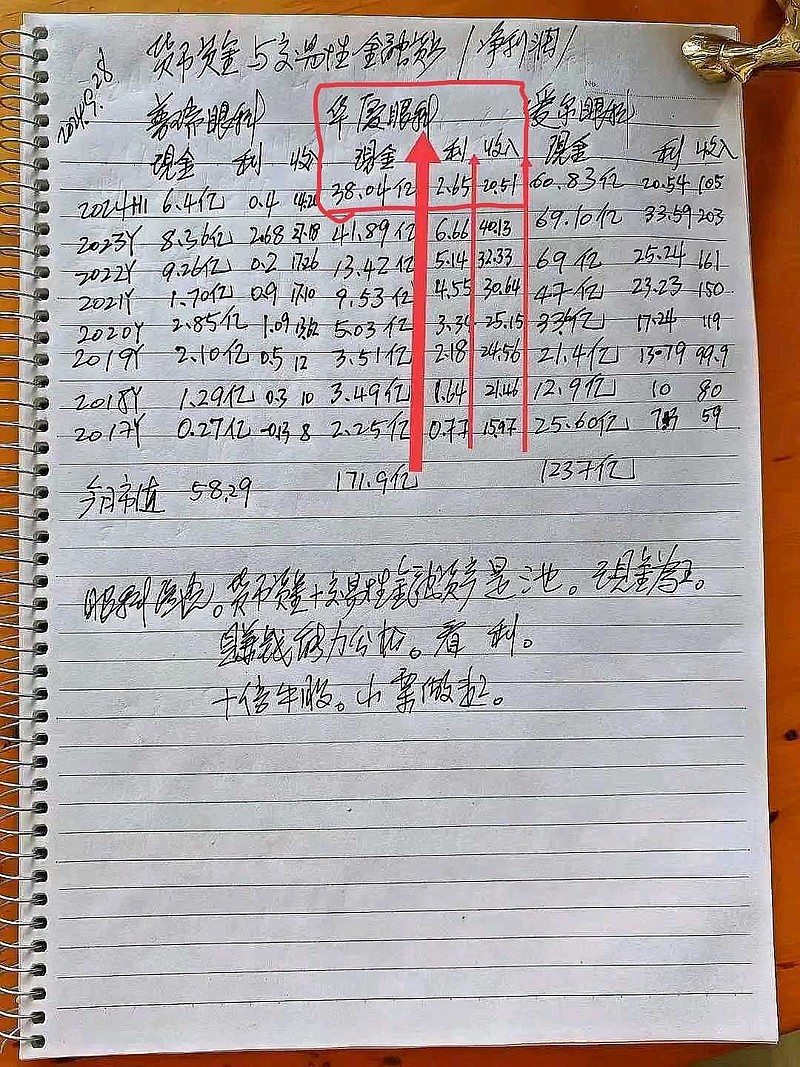 货币资金与交易性金融资产 / 净利润 /
2024.9.28
普瑞眼科 华厦眼科 爱尔眼科
现金 利 收入 现金 利 收入 现金 利 收入
2024H1 6.4亿 0.4 38.04亿 2.65 20.51 60.83亿 20.54 105
2023Y 8.36亿 2.68 27.18 41.89亿 6.66 40.13 69.10亿 33.59 203
2022Y 9.26亿 0.2 17.26 13.42亿 5.14 32.33 69亿 25.24 161
2021Y 1.70亿 0.9 17.10 9.53亿 4.55 30.64 47亿 23.23 150
2020Y 2.85亿 1.09 13.62 5.03亿 3.34 25.15 33亿 17.24 119
2019Y 2.10亿 0.5 12 3.51亿 2.18 24.56 21.4亿 13.79 99.9
2018Y 1.29亿 0.3 10 3.49亿 1.64 21.46 12.9亿 10 80
2017Y 0.27亿 -0.13 8 2.25亿 0.77 15.97 25.60亿 59
今日市值 58.29 171.9亿 1237亿
眼科医院。货币资金+交易性金融资产是池。现金为王。
赚钱能力分析。看利。
十倍牛股。小票做起。